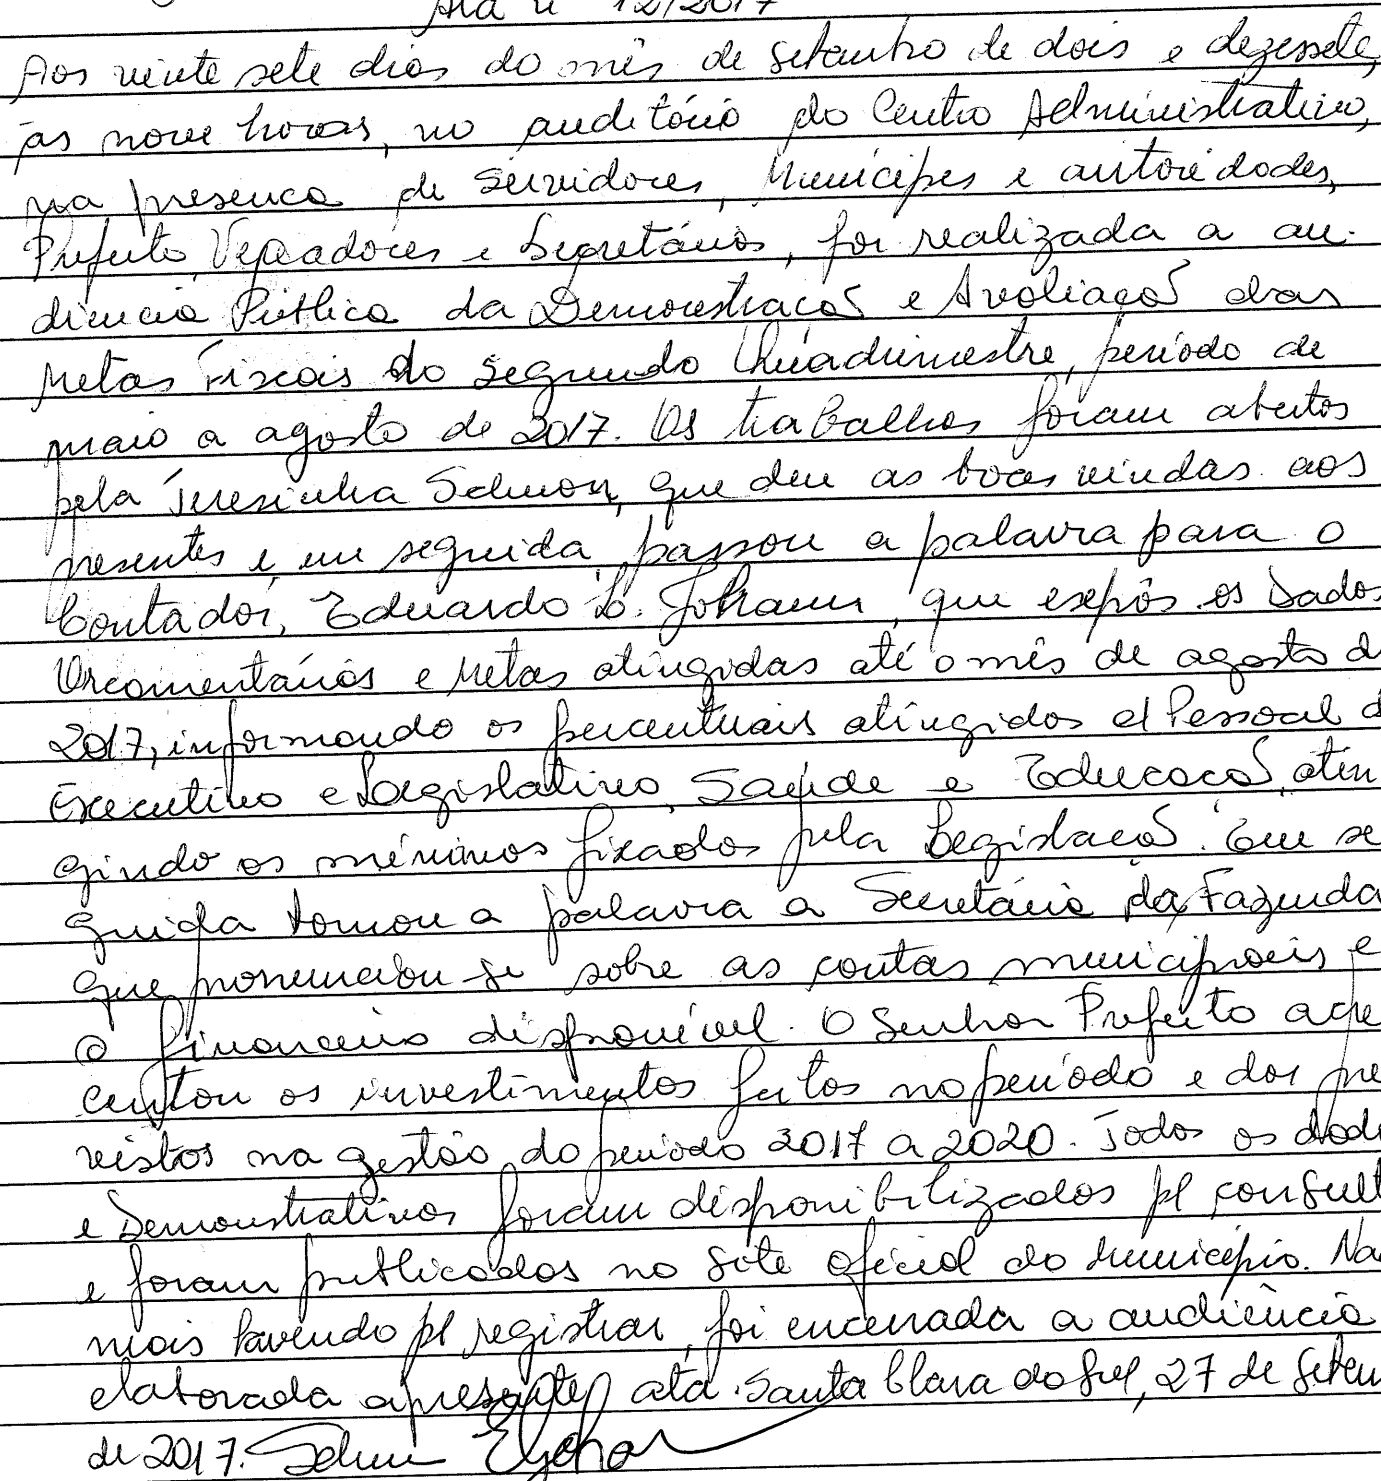 Ata nº 12/2017
Aos vinte sete dias do mês de Setembro de dois e dezessete,
às nove horas, no auditório do Centro Administrativo,
na presenca de Servidores, Munícipes e autoridades,
Prefeito, Vereadores e Secretários, foi realizada a au-
diencia Pública da Demonstração e Avaliação das
Metas Fiscais do Segundo Quadrimestre, período de
maio a agosto de 2017. Os trabalhos foram abertos
pela Teresinha Selmon, que deu as boas vindas aos
presentes e em seguida passou a palavra para o
Contador, Eduardo L. Johann, que expôs os Dados
Orcamentários e Metas atingidas até o mês de agosto d
2017, informando os percentuais atingidos c/ Pessoal d
Executivo e Legislativo, Saúde e Educacão, atin
gindo os mínimos fixados pela Legislacão. Em se
guida tomou a palavra a Secretária da Fazenda
que pronunciou-se sobre as contas municipais e
o financeiro disponível. O Senhor Prefeito acre
centou os investimentos feitos no período e dos pre
vistos na gestão do período 2017 a 2020. Todos os dad
e Demonstrativos foram disponibilizados p/ consult
e foram publicados no site oficial do município. Na
mais havendo p/ registrar, foi encerrada a audiência
elaborada a presente ata. Santa Clara do Sul, 27 de Setem
de 2017.